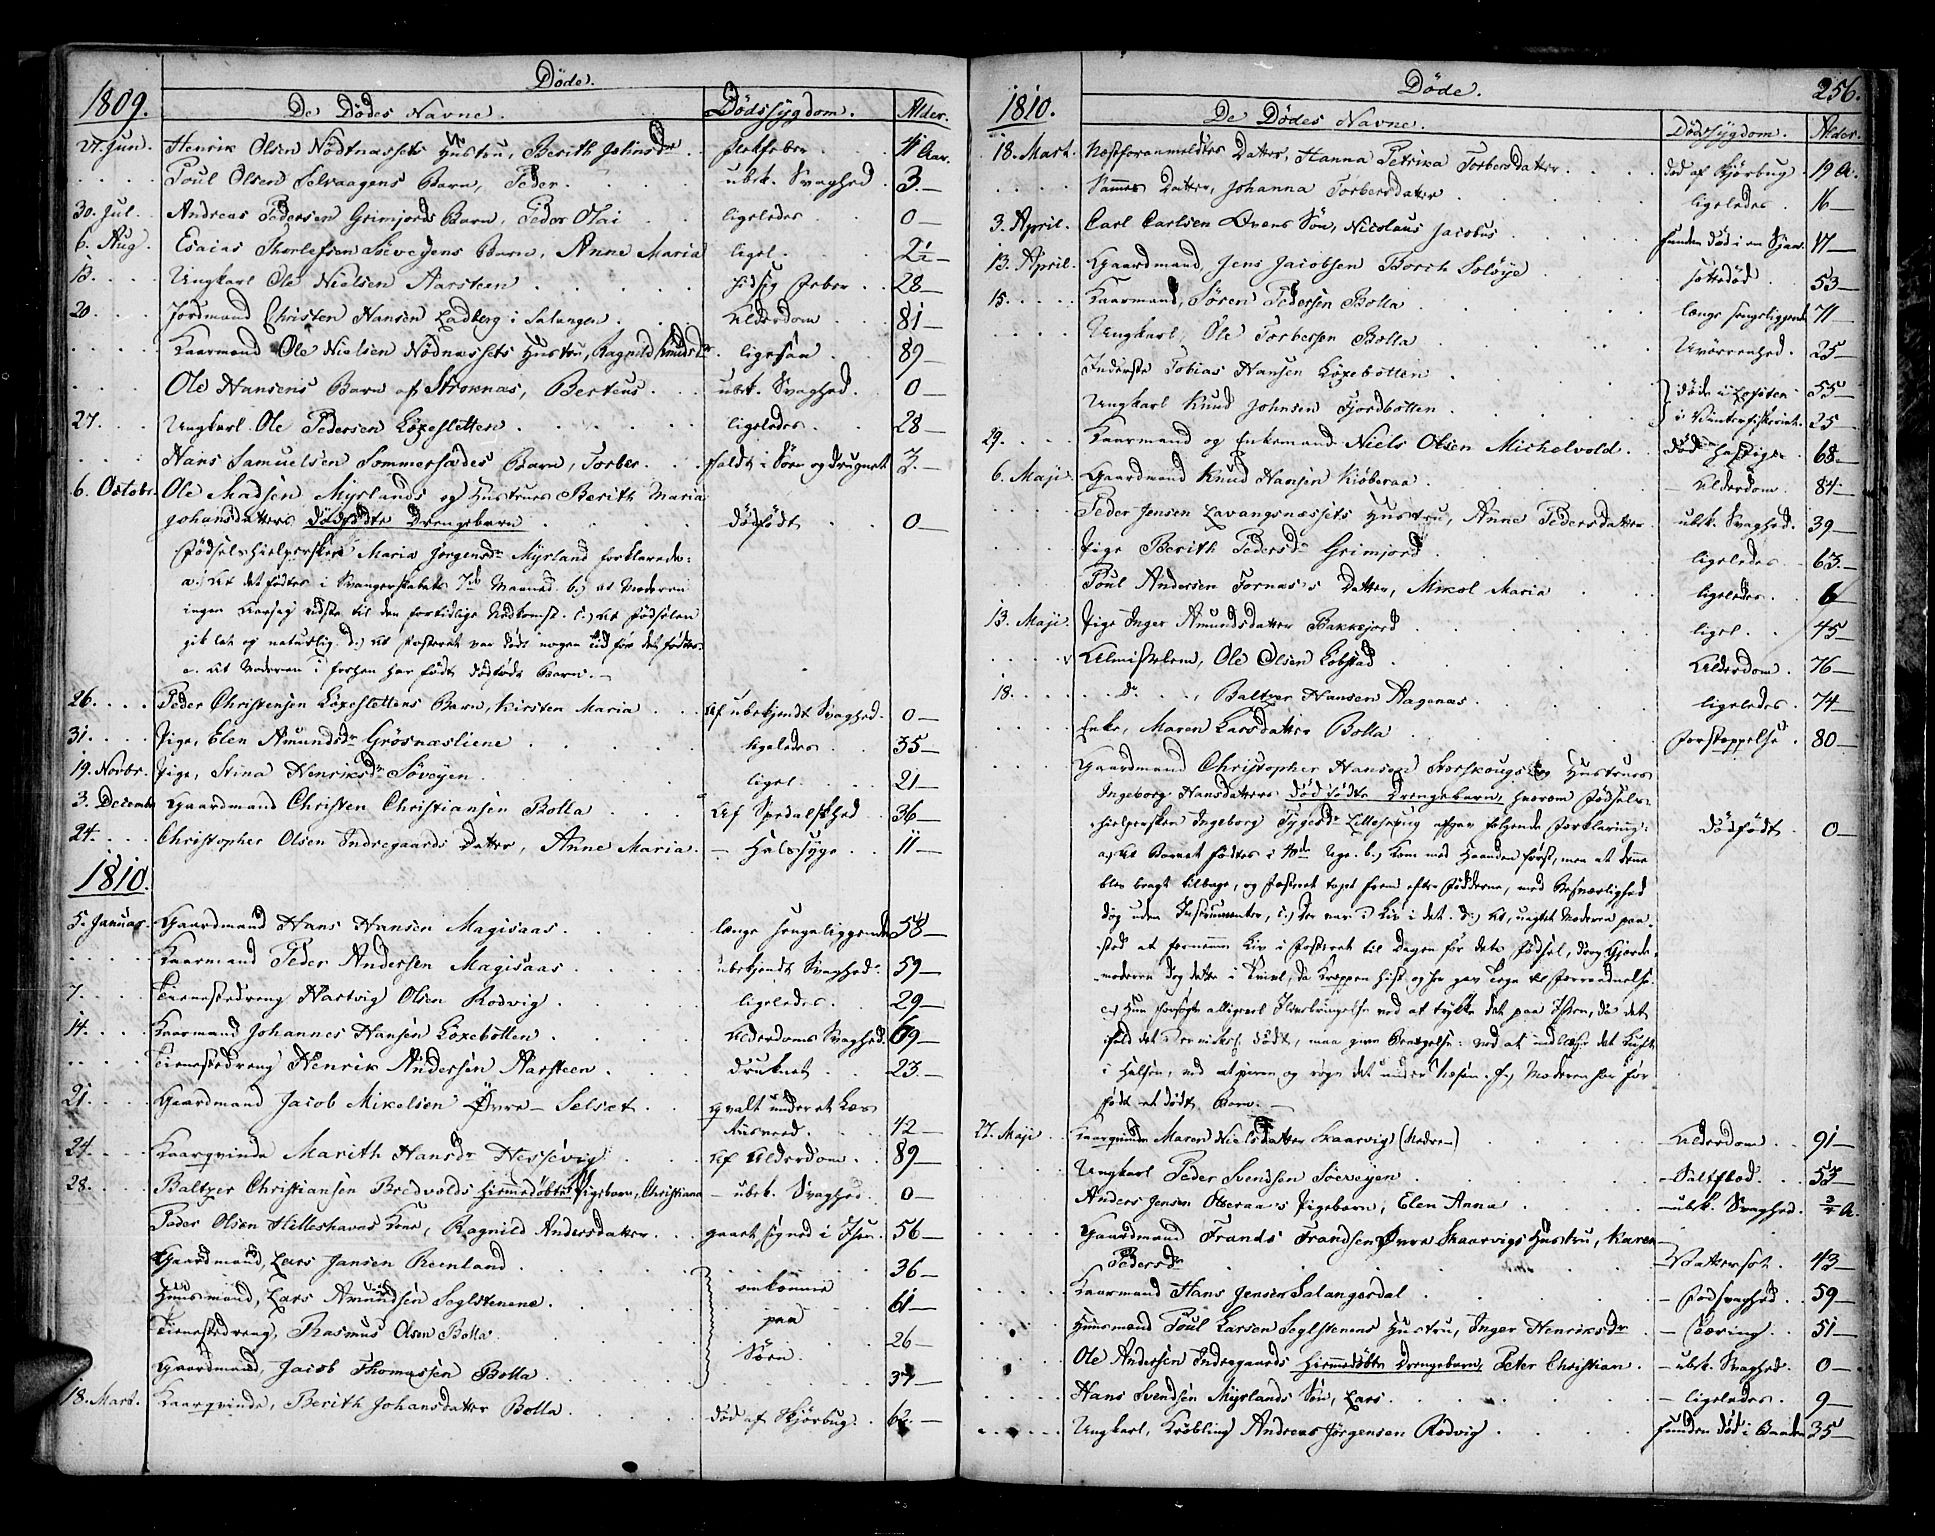 Døde.
1809. De Dødes Navne. Dødssygdom. Alder.
27. Jun. Henrik Olsen Nödtnæssets Hustru, Berith Johnsdr. 41 Aar.
Poul Olsen Selvaagens Barn, Peder. ubek. Svaghed. 3.
30. Jul. Andreas Pedersen Grimjords Barn, Peder Olai ligeledes. 0
6. Aug. Esaias Thorlefsen Söveyens Barn, Anne Maria ligel. 2½
13. Ungkarl Ole Nielsen Aarsteen hidsig Feber 28
20. Jordmand Christen Hansen Ladberg i Salangen. Alderdom 81
Kaarmand Ole Nielsen Nödnæssets Hustru, Ragnild Knudsdr. ligesaa. 89
Ole Hansens Barn af Stroknæs, Berteus. ubek. Svaghed. 0
27. Ungkarl Ole Pedersen Löxesletten ligeledes. 28
Hans Samuelsen Sommersædes Barn, Torber. faldt i Søen og druknet 3.
6. Octobr. Ole Madsen Myrlands og Hustrues Berith Maria
Johansdatters dødfødte Drengebarn dødfødt 0
Fødselshielpersken Maria Jørgensdr. Myrland forklarede:
a.) At det fødtes i Svangerskabets 7de Maaned. b.) at Moderen
ingen Aarsag vidste til den fortidlige Nedkomst. c.) At Fødselen
gik let og naturlig. d.) At Fosteret var dødt nogen tid før det fødtes
e. At Moderen i forhen har født dødfødt Barn.
26. Peder Christensen Löxeslettens Barn, Kirsten Maria Af ubekjendt Svaghed. 0
31. Pige, Elen Amundsdr. Grösnæsliene ligeledes 35
19. Novbr. Pige, Stina Henriksdr. Söveyen ligel 21
3. Decembr Gaardmand Christen Christiansen Bolla Af Spedalskhed 36
24. Christopher Olsen Indregaards Datter, Anne Maria. Halssyge 11
1810.
5. Januar. Gaardmand Hans Hansen Magisaas. længe sengeliggende 58
Kaarmand Peder Andersen Magisaas ubekjendt Svaghed. 59
7. Tienestedreng Hartvig Olsen Rodvig ligeledes. 29
14. Kaarmand Johannes Hansen Löxebotten Alderdoms Svaghed. 69
Tienestedreng Henrik Andersen Aarsteen. druknet 23
21. Gaardmand Jacob Mikelsen Øvre-Selset qvalt under et Læs
42
24. Kaarqvinde Marith Hansdr. Hessevig Af Alderdom. 89
28. Baltzer Christiansen Bredvolds hiemmedøbte Pigebarn, Christiana ubek. Svaghed. 0
Peder Olsen Helleshavns Kone, Ragnild Andersdatter 56
Gaardmand, Lars Jansen Reenland 36
Huusmand, Lars Amundsen Seglstenene. omkomne 61
Tienestedreng, Rasmus Olsen Bolla paa 26
Gaardmand, Jacob Thomassen Bolla Søen. 37
18. Mart. Kaarqvinde, Berith Johansdatter Bolla. død af Skjørbug. 62.
Døde. 256.
1810. De Dødes Navne. Dødssygdom. Alder.
18. Mart. Næstforanmeldtes Datter, Hanna Petrika Torbersdatter død af Skjørbug 19 A.
Sammes Datter, Johanna Torbersdatter ligeledes. 16
3. April. Carl Carlsen Qvens Søn, Nicolaus Jacobus funden død i en 17
13. April. Gaardmand, Jens Jacobsen Borch Solöye sottedød. 53
15. Kaarmand, Sören Pedersen Bolla længe sengeliggende 71
Ungkarl, Ole Torbersen Bolla Uvörrenhed. 25
Inderste Tobias Hansen Löxebotten døde i Lofoten 55
Ungkarl Knud Johnsen Fjordbotten i Vinterfiskeriet. 25
29. Kaarmand og Enkemand Niels Olsen Michelvold. død hastig 68
6. Maji. Gaardmand Knud Hansen Kiöberaa Alderdom. 84
Peder Jensen Lavangsnæssets Hustru, Anne Pedersdatter ubek. Svaghed. 39
Pige Berith Pedersdr. Grimjord ligeledes 63
Poul Andersen Fornæs's Datter, Mikol Maria ligeledes. 6
13. Maji. Pige Inger Amundsdatter Bakkejord ligel. 45
Almislem, Ole Olsen Löbstad Alderdom. 76
18. Do. , Baltzer Hansen Hagenæs. ligeledes. 74
Enke, Maren Larsdatter Bolla Forstoppelse 80
Gaardmand Christopher Hansen Storskougs og Hustrues
Ingeborg Hansdatters dødfødte Drengebarn, hvorom Fødsels-
hielpersken Ingeborg Tygesdr. Lilleskoug afgav følgende Forklaring: dødfødt 0
a.) At Barnet fødtes i 40de Uge. b.) Kom med Haanden først, men at denne
blev bragt tilbage, og Fosteret tagt frem efter Fødderne, med Besværlighed
dog uden Instrumenter, c.) Der var ei Liv i det. d.) At, uagtet Moderen paa-
stod at fornemme Liv i Fosteret til Dagen før dets Fødsel, drog Gjorde-
moderen dog dette i Tvivl, da Kroppen hist og her gav Tegn til Forraadnelse.
e.) Hun forsøgte alligevel Ilivebringelse ved at dykke det paa Issen, da det
ifald det var nikst. dødt, maa give Bevægelse: ved at indblæse det Luft
i Halsen, ved at pirre og røge det under Næsen. f.) Moderen har før
født et dødt Barn.
27. Maji Kaarqvinde Maren Nielsdatter Skaarvig (Nedre-) Alderdom. 91
Ungkarl Peder Svendsen Söeveyen Saltflod. 53
Anders Jensen Otteraa's Pigebarn, Elen Anna ubek. Svaghed. ¾ A.
Gaardmand Frands Frandsen Øvre Skaarvigs Hustru, Karen
Pedersdr. Vattersot. 43
Kaarmand Hans Jensen Salangsdal 59
Huusmand Poul Larsen Seglstenens Hustru, Inger Henriksdr. Tæring. 51
Ole Andersen Indregaards hiemmedøbte Drengebarn, Peter Christian. ubek. Svaghed. 0
Hans Svendsen Myrlands Søn, Lars ligeledes. 9
Ungkarl, Kröbling Andreas Jörgensen Rodvig funden død i Baaden 35